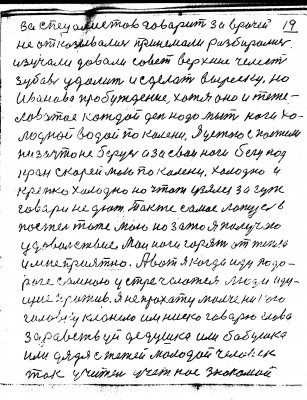 за специалистов говарит за врачей 19
не отказывалис принемали разбиралис
изучали довали совет верхние челюст
зубав удалит и сделат вырезку, но
Иванова пробуждение, хотя оно и тяже-
лое
каждой ден надо мыт ноги хо-
лодной водой по калени, Я уетово
низашто не берус а за сваи ноги бегу под
кран скарей мыю по калени, холодно и
крепко холодно но
говари не дают. Также самое
тоже мою но зато я получаю
удовольствие, Маи ноги горят от тепла
и мне приятно. А вот я когда иду по до-
роге со мною устречаются люди иду-
щие я не прохажу молчком
голову клоню или ниско говарю слова
здаравствуй дедушка или бабушка
или дядя с тетей молодой человек
так учител ученное знакомой